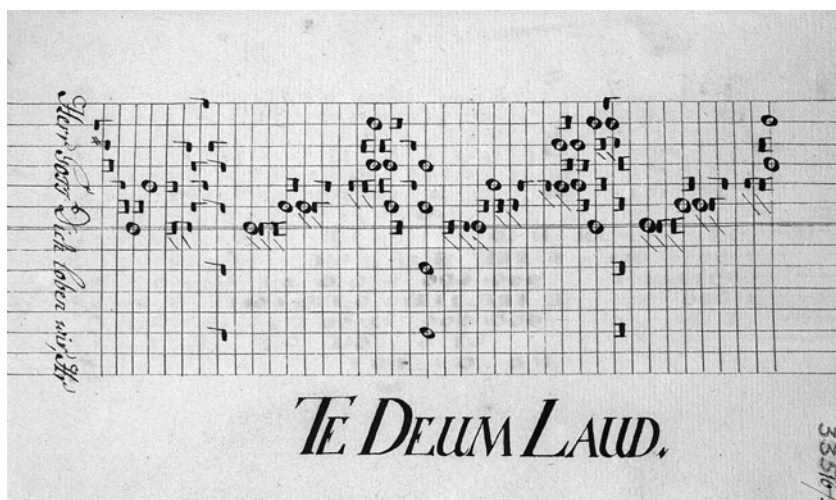 Herr Gott Dich loben wir,
TE DEUM LAUD.